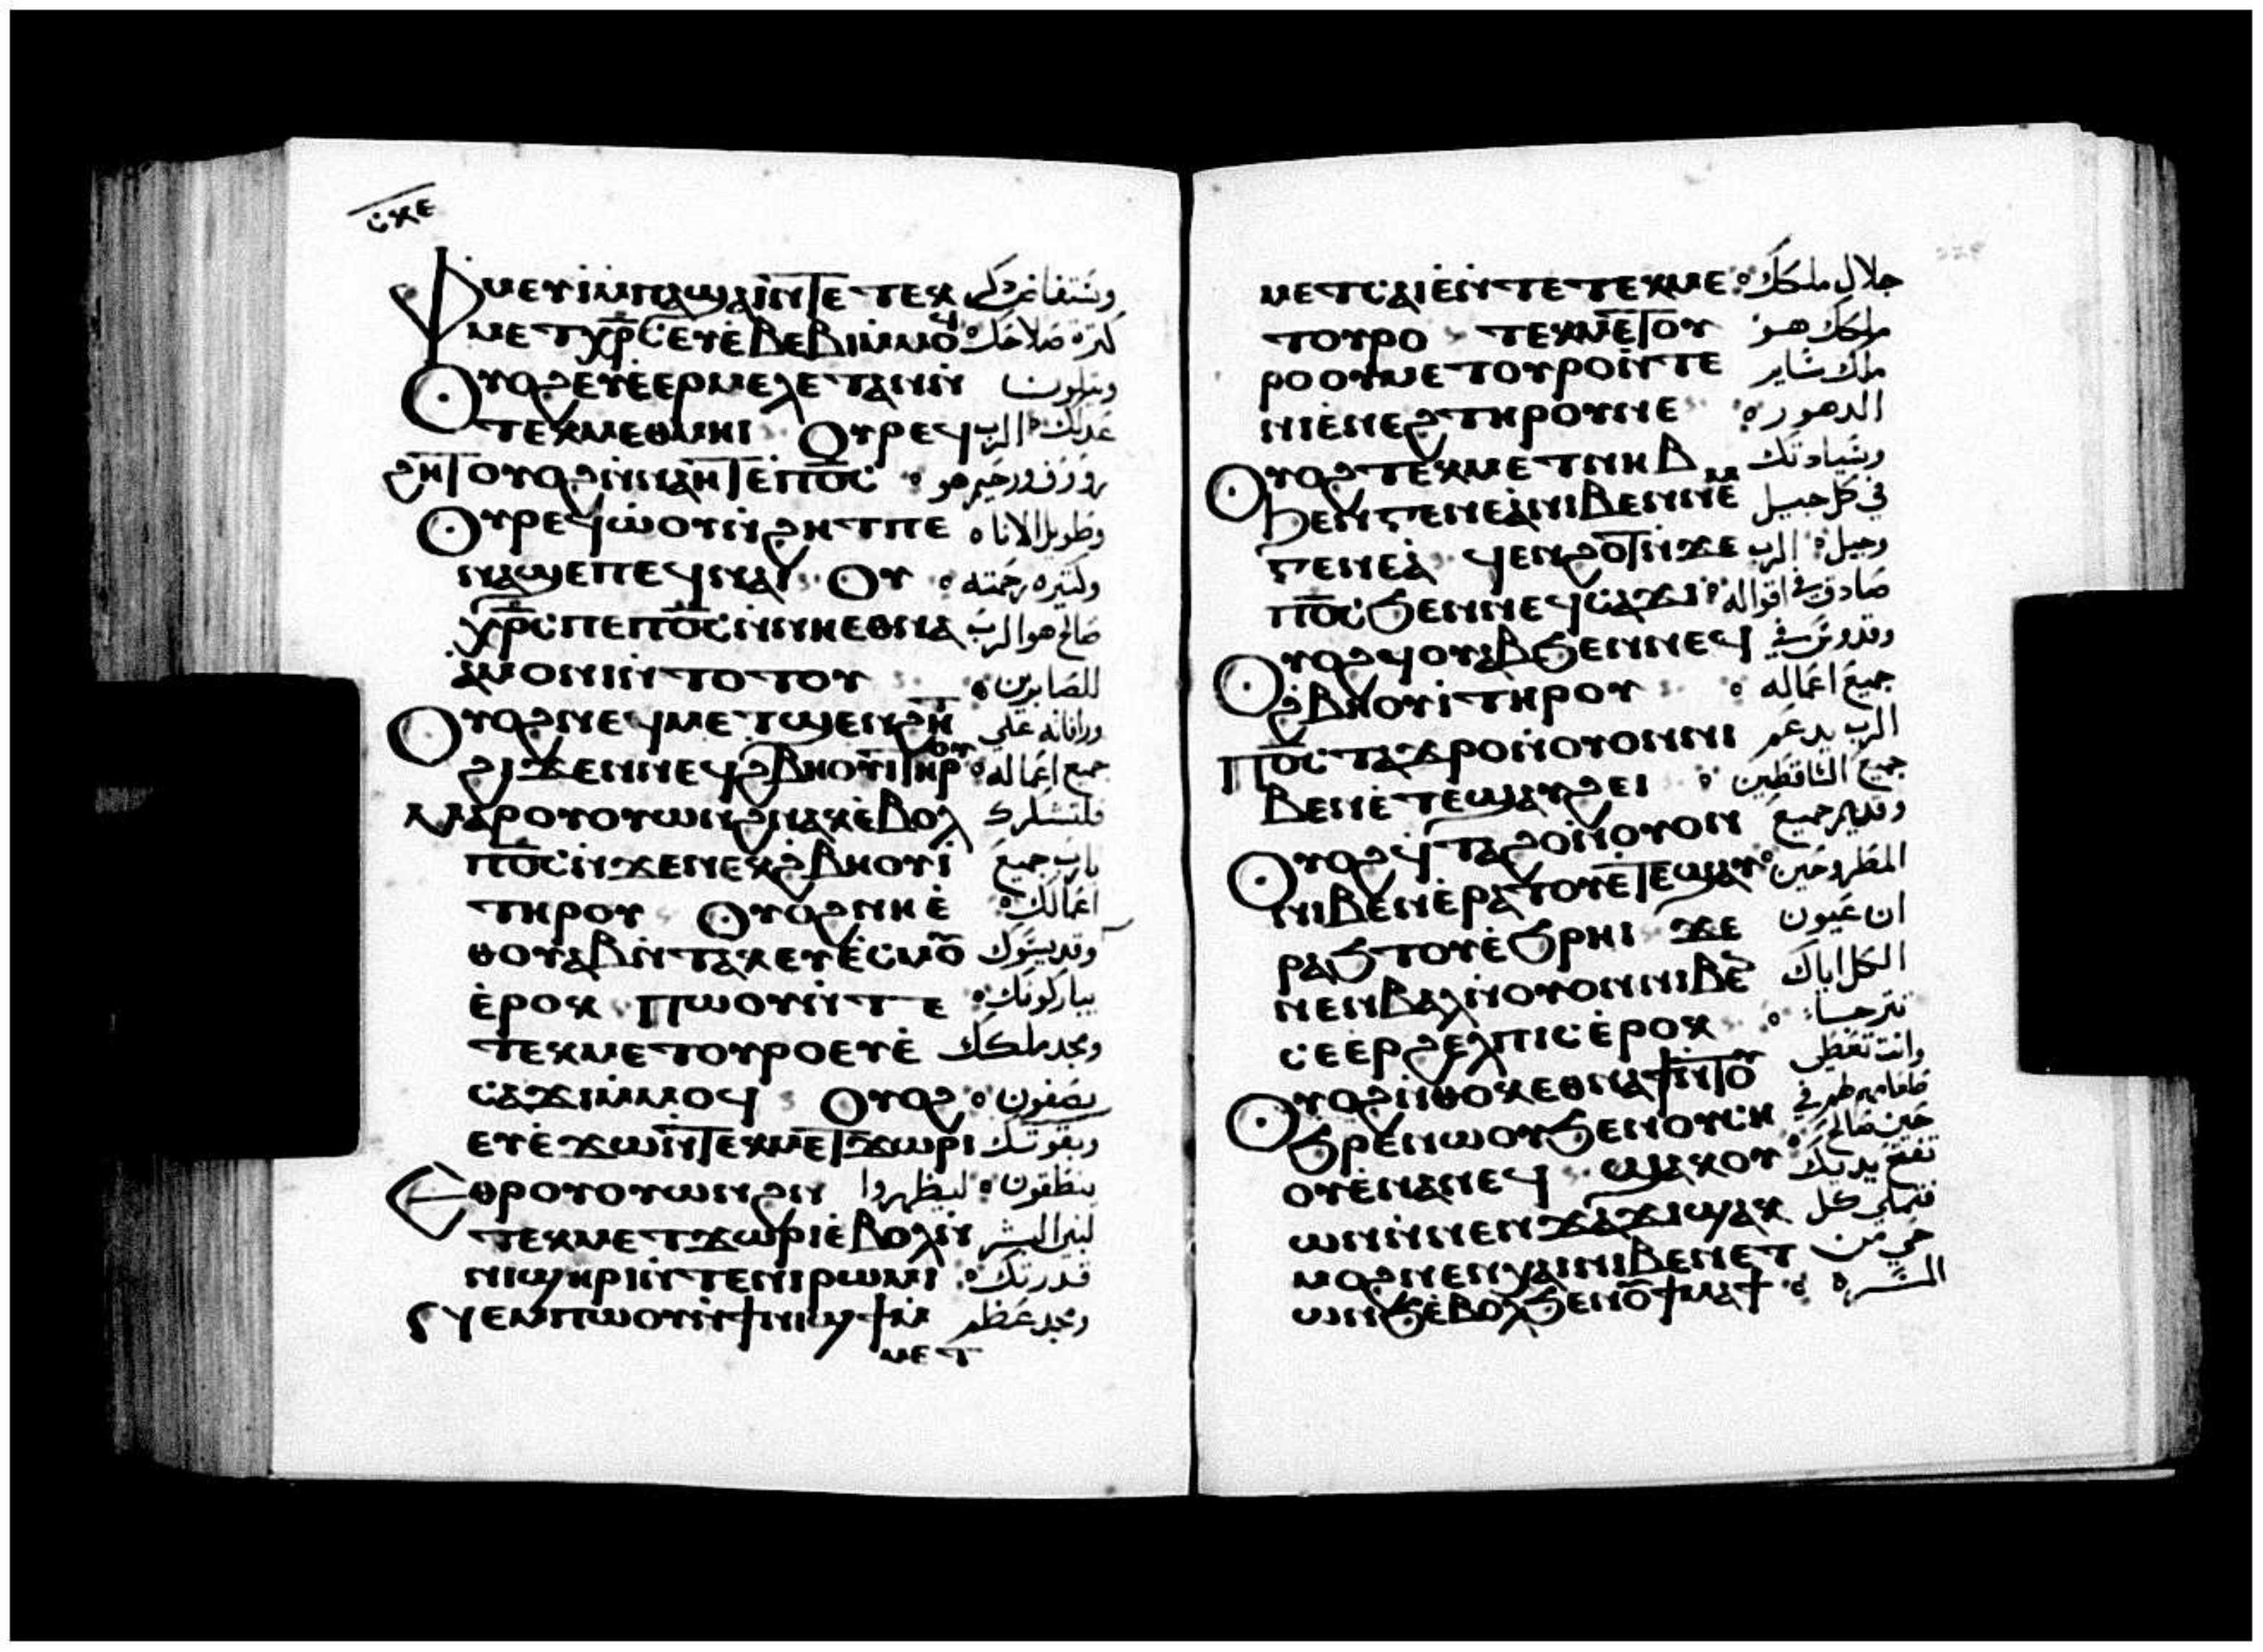 ⲥⲕⲉ
ⲫⲙⲉⲩⲓ ⲙ̀ⲡⲁϣⲁⲓ ⲛ̀ⲧⲉ ⲧⲉⲕ
ⲙⲉⲧⲭⲣ̅ⲥ ⲉⲩⲉ̀ⲃⲉⲃⲓ ⲙ̀ⲙⲟϥ
ⲟⲩⲟϩ ⲉⲩⲉ̀ⲉⲣⲙⲉⲗⲉⲧⲁⲛ ϧⲛ̀ ويتلون
ⲧⲉⲕⲙⲉⲑⲙⲏⲓ ⲟⲩⲣⲉϥ عدلك الرب
ϩⲏϯ ⲟⲩⲟϩ ⲛ̀ⲛⲁⲏⲧ ⲉ̀ ⲡⲟ̅ⲥ̅ رووف ورحيم هو
ⲟⲩⲣⲉϥⲱ̀ⲟⲩⲛ̀ϩⲏⲧ ⲡⲉ وطويل الاناه
ⲛⲁϣⲉ ⲡⲉϥⲛⲁⲓ ⲟⲩ وكتيره رحمته
ⲭⲣ̅ⲥ ⲡⲉ ⲡⲟ̅ⲥ̅ ⲛ̀ⲛⲏⲉⲑⲛⲁ صالح هو الرب
ⲁ̀ⲙⲟⲛⲓ ⲛ̀ⲧⲟⲧⲟⲩ للصابرين
ⲟⲩⲟϩ ⲛⲉϥⲙⲉⲧϣⲉⲛϩⲏⲧ ورافاته علي
ϩⲓϫⲉⲛ ⲛⲉϥϩ̀ⲃⲏⲟⲩⲓ̀ ⲧⲏⲣⲟⲩ جميع اعماله
ⲙⲁⲣⲟⲩⲟⲩⲱⲛϩ ⲛⲁⲕ ⲉ̀ⲃⲟⲗ فلتشكرك
ⲡⲟ̅ⲥ̅ ⲛ̀ϫⲉ ⲛⲉⲕϩ̀ⲃⲏⲟⲩⲓ̀ يارب جميع
ⲧⲏⲣⲟⲩ ⲟⲩⲟϩ ⲛⲏⲉ̀ اعمالك
ⲑⲟⲩⲁⲃ ⲛ̀ⲧⲁⲕ ⲉⲩⲉ̀ⲥⲙⲟ̅ وقديسوك
ⲉ̀ⲣⲟⲕ ⲡⲱⲟⲩ ⲛ̀ⲧⲉ يباركونك
ⲧⲉⲕⲙⲉⲧⲟⲩⲣⲟ ⲉⲩⲉ̀ ومجد ملكك
ⲥⲁϫⲓ ⲙ̀ⲙⲟϥ ⲟⲩⲟϩ يصفون
ⲉⲩⲉ̀ϫⲱ ⲛ̀ⲧⲉⲕⲙⲉⲧϫⲱⲣⲓ وبقوتك
ⲉⲑⲣⲟⲩⲟⲩⲱⲛϩ ⲛ̀ ينطقون ليظهروا
ⲧⲉⲕⲙⲉⲧϫⲱⲣⲓ ⲉ̀ⲃⲟⲗ ⲛ̀ لبني البشر
ⲛⲓϣⲏⲣⲓ ⲛ̀ⲧⲉ ⲛⲓⲣⲱⲙⲓ قدرتك
ⲛⲉⲙ ⲡⲱⲟⲩ ⲛ̀ϯⲛⲓϣϯ ⲙ̀ ومجد عظم
ⲙⲉⲧ
ⲙⲉⲧⲥⲁⲓⲉ̀ ⲛ̀ⲧⲉ ⲧⲉⲕⲙⲉ جلال ملكك
ⲧⲟⲩⲣⲟ ⲧⲉⲕⲙⲉⲧⲟⲩ ملكك هو
ⲣⲟ ⲟⲩⲙⲉⲧⲟⲩⲣⲟ ⲛ̀ⲧⲉ ملك ساير
ⲛⲓⲉ̀ⲛⲉϩ ⲧⲏⲣⲟⲩ ⲛⲉ الدهور
ⲟⲩⲟϩ ⲧⲉⲕⲙⲉⲧⲛⲏⲃ وسيادتك
ϧⲉⲛ ⲅⲉⲛⲉⲁ̀ ⲛⲓⲃⲉⲛ ⲛⲉⲙ في كل جيل
ⲅⲉⲛⲉⲁ̀ ϥⲉⲛϩⲟⲧ ⲛ̀ϫⲉ وجيل الرب
ⲡⲟ̅ⲥ̅ ϧⲉⲛ ⲛⲉϥⲥⲁϫⲓ صادق في اقواله
ⲟⲩⲟϩ ϥⲟⲩⲁⲃ ϧⲉⲛ ⲛⲉϥ وقدوس في
ϩ̀ⲃⲏⲟⲩⲓ̀ ⲧⲏⲣⲟⲩ جميع اعماله
ⲡⲟ̅ⲥ̅ ⲧⲁϫⲣⲟ ⲛ̀ⲟⲩⲟⲛ ⲛⲓ الرب يدعم
ⲃⲉⲛ ⲉ̀ⲧⲉϣⲁⲩϩⲉⲓ جميع الساقطين
ⲟⲩⲟϩ ϥⲧⲁϩⲟ ⲛ̀ⲟⲩⲟⲛ ويقيم جميع
ⲛⲓⲃⲉⲛ ⲉ̀ⲣⲁⲧⲟⲩ ⲉ̀ⲧⲉϣⲁⲩ المطروحين
ⲣⲁϧⲧⲟⲩ ⲉ̀ϧⲣⲏⲓ ϫⲉ ان عيون
ⲛⲉⲛⲃⲁⲗ ⲛ̀ⲟⲩⲟⲛ ⲛⲓⲃⲉⲛ الكل اياك
ⲥⲉⲉⲣϩⲉⲗⲡⲓⲥ ⲉ̀ⲣⲟⲕ تترجا
ⲟⲩⲟϩ ⲛ̀ⲑⲟⲕ ⲉⲑⲛⲁϯ ⲛ̀ⲧⲟⲩ وانت تعطي
ϧⲣⲉ ⲛⲱⲟⲩ ϧⲉⲛ ⲟⲩⲥⲏ طعامهم في
ⲟⲩ ⲉ̀ⲛⲁⲛⲉϥ ϣⲁⲕⲟⲩ حين صالح
ⲱⲛ ⲛ̀ⲛⲉⲛϫⲓϫ ϣⲁⲕ تفتح يديك
ⲙⲟϩ ⲛⲉⲛⲭⲁⲓ ⲛⲓⲃⲉⲛ ⲉⲧ فتملي كل
ⲱⲛϧ ⲉ̀ⲃⲟⲗ ϧⲉⲛ ⲟ̅ϯⲙⲁϯ حي من المسره